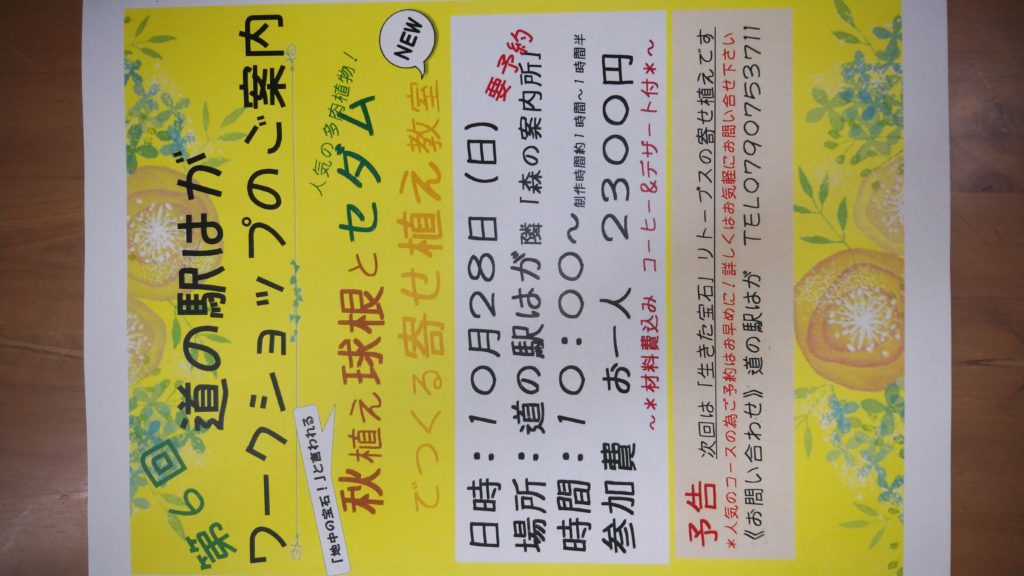 第6回
道の駅はが
ワークショップのご案内
「地中の宝石！」と言われる
人気の多肉植物！
秋植え球根とセダム
でつくる寄せ植え教室
NEW
日時：１０月２８日（日）
要予約
場所：道の駅はが隣「森の案内所」
時間：１０：００～制作時間約１時間～１時間半
参加費　お一人　２３００円
～＊材料費込み　コーヒー＆デザート付＊～
予告　次回は「生きた宝石」リトープスの寄せ植えです
＊人気のコースの為ご予約はお早めに！詳しくはお気軽にお問い合せ下さい
《お問い合わせ》道の駅はが　ＴＥＬ０７９０７５３７１１